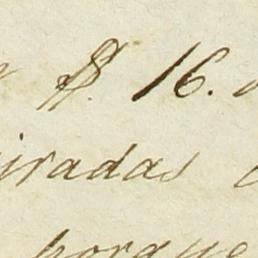 $ 16.
iradas
porque